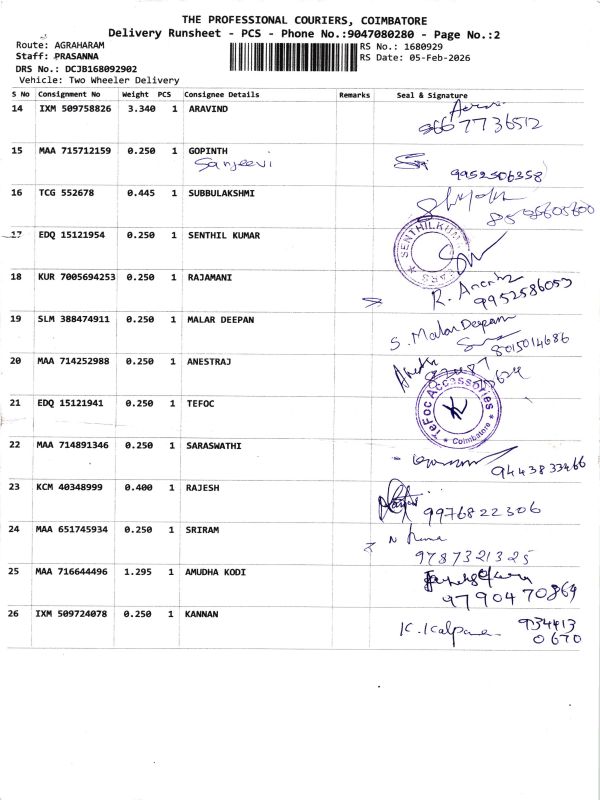 THE PROFESSIONAL COURIERS, COIMBATORE
Delivery Runsheet - PCS - Phone No.:9047080280 - Page No.:2
Route: AGRAHARAM
RS No.: 1680929
Staff: PRASANNA
RS Date: 05-Feb-2026
DRS No.: DCJB168092902
Vehicle: Two Wheeler Delivery
S No Consignment No Weight PCS Consignee Details Remarks Seal & Signature
14 IXM 509758826 3.340 1 ARAVIND
7736512
15 MAA 715712159 0.250 1 GOPINTH
Sanjeevi
9952506358
16 TCG 552678 0.445 1 SUBBULAKSHMI
17 EDQ 15121954 0.250 1 SENTHIL KUMAR
18 KUR 7005694253 0.250 1 RAJAMANI
R.
9952586053
19 SLM 388474911 0.250 1 MALAR DEEPAN
S. Malar Deepan
8015014686
20 MAA 714252988 0.250 1 ANESTRAJ
21 EDQ 15121941 0.250 1 TEFOC
TeFoc Accessories
* Coimbatore *
22 MAA 714891346 0.250 1 SARASWATHI
9443833466
23 KCM 40348999 0.400 1 RAJESH
9976822306
24 MAA 651745934 0.250 1 SRIRAM
9787321325
25 MAA 716644496 1.295 1 AMUDHA KODI
9790470869
26 IXM 509724078 0.250 1 KANNAN
K. Kalpana 934413
0670